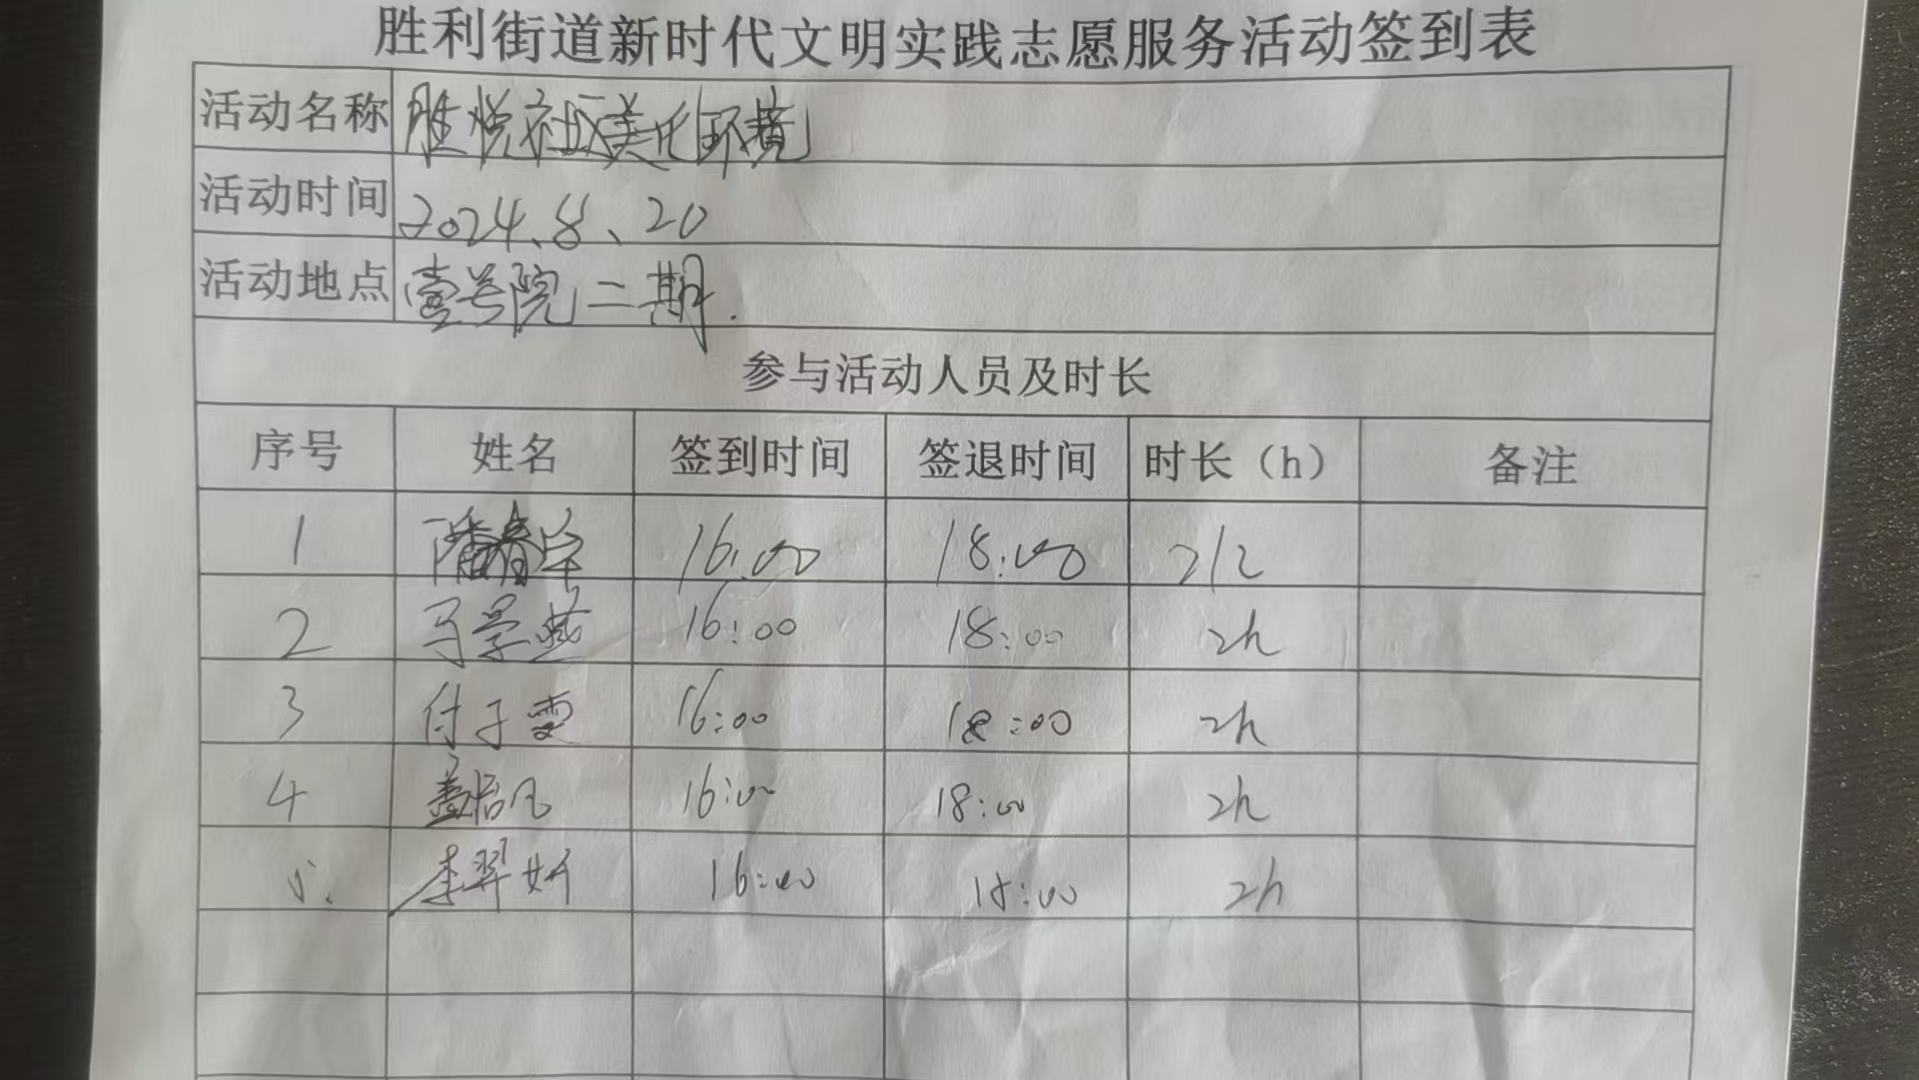 胜利街道新时代文明实践志愿服务活动签到表
活动名称 胜悦社区美化环境
活动时间 2024、8、20
活动地点 壹号院二期.
参与活动人员及时长
序号 姓名 签到时间 签退时间 时长（h） 备注
1 16:00 18:00
2 马学燕 16:00 18:00 2h
3 付子雯 16:00 18:00 2h
4 16:00 18:00 2h
5. 李羿妍 16:00 18:00 2h